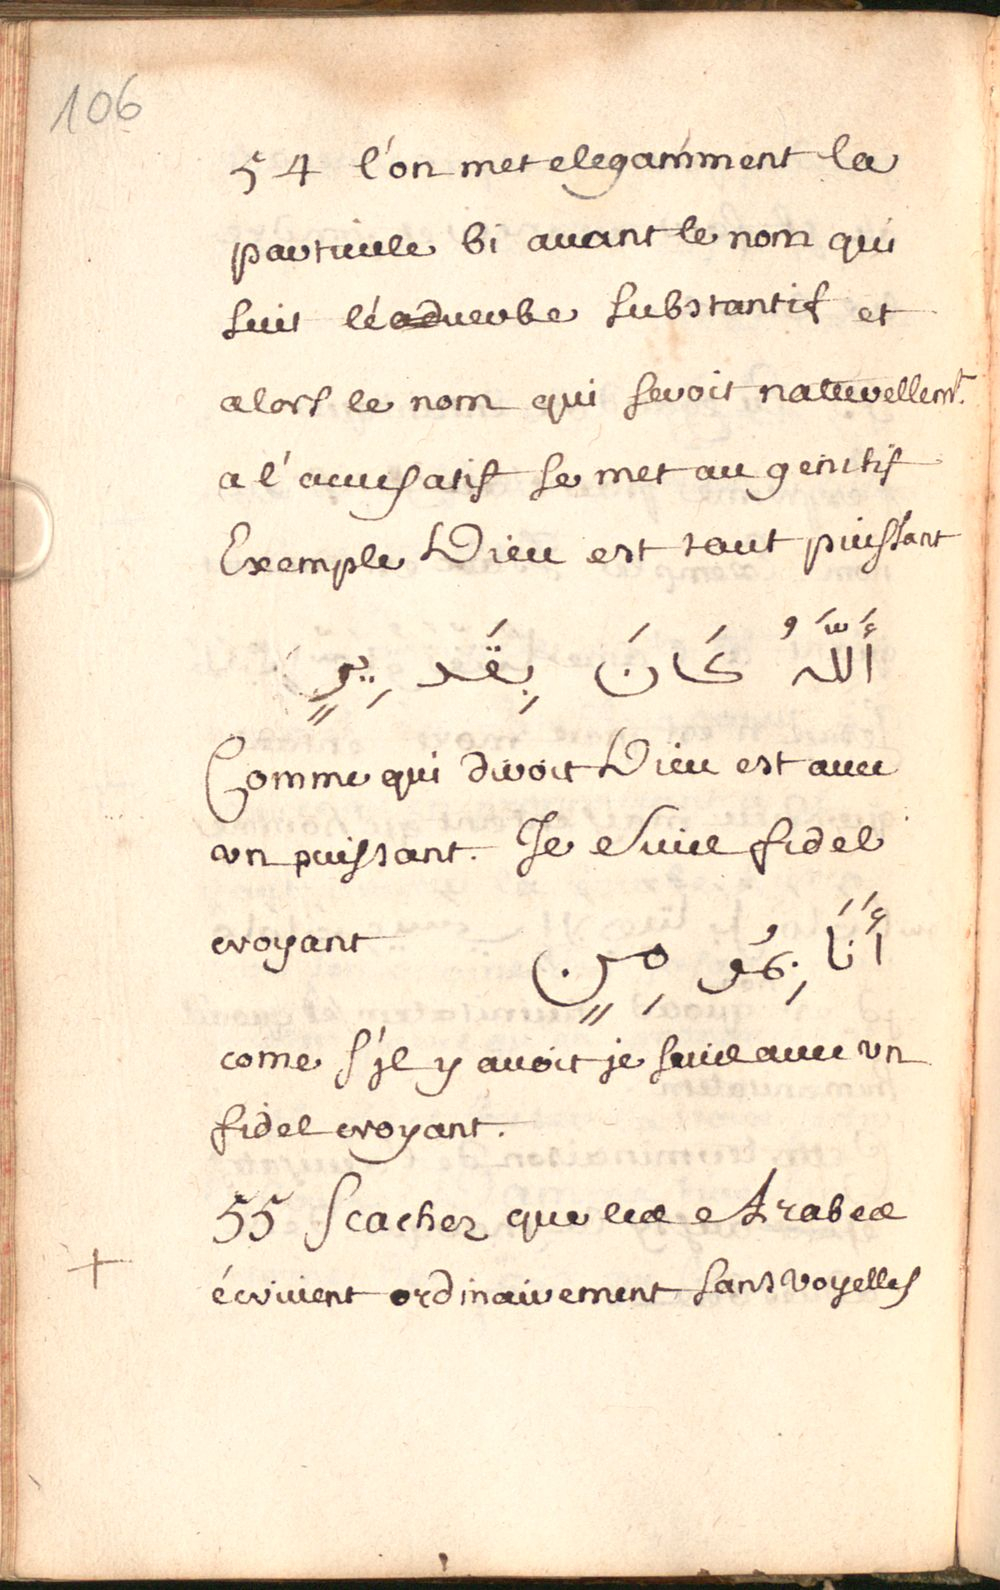 106
54 l'on met elegamment la
particule bi auant le nom qui
suit le verbe substantif et
alors le nom qui seroit naturellemt.
a l'acusatif se met au genitif
Exemple Dieu est tout puissant
أَللَّهُ كَانَ بِقَدِيرٍ
Comme qui diroit Dieu est auec
vn puissant. Je suis fidel
croyant أَنَا بِمُومِنٍ
come s'jl y auoit je suis auec vn
fidel croyant.
55 Scachez que les Arabes
+ écriuent ordinairement sans voyelles